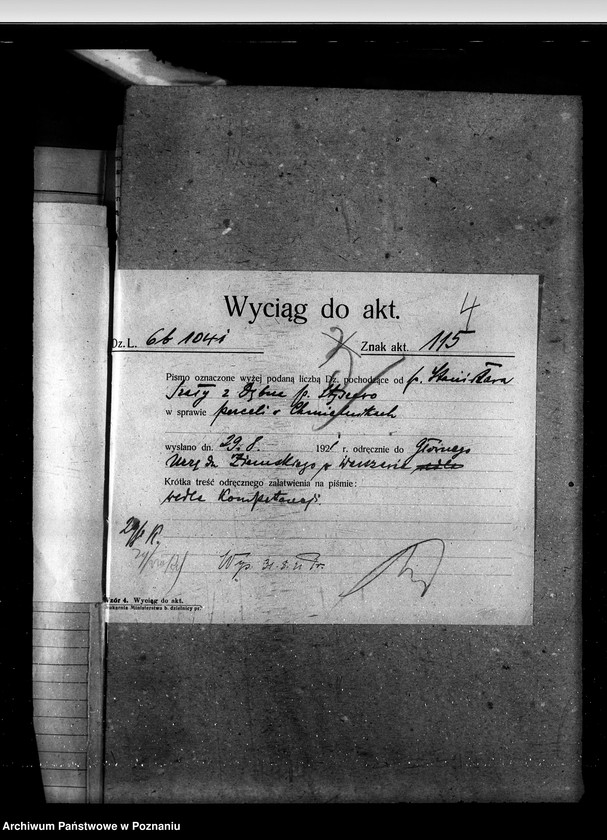 Wyciąg do akt.
4
Dz. L. 6b 104i
Znak akt. 115
Pismo oznaczone wyżej podaną liczbą Dz. pochodzące od p. Stanisława
z Dębna p.
w sprawie parceli w
wysłano dn. 29. 8. 1921 r. odręcznie do Głównego
Urzędu Ziemskiego w Warszawie
Krótka treść odręcznego załatwienia na piśmie:
wedle kompetencji.
29/8 R.
Wys. 31.8.21
Wzór 4. Wyciąg do akt.
Drukarnia Ministerstwa b. dzielnicy pr.
Archiwum Państwowe w Poznaniu